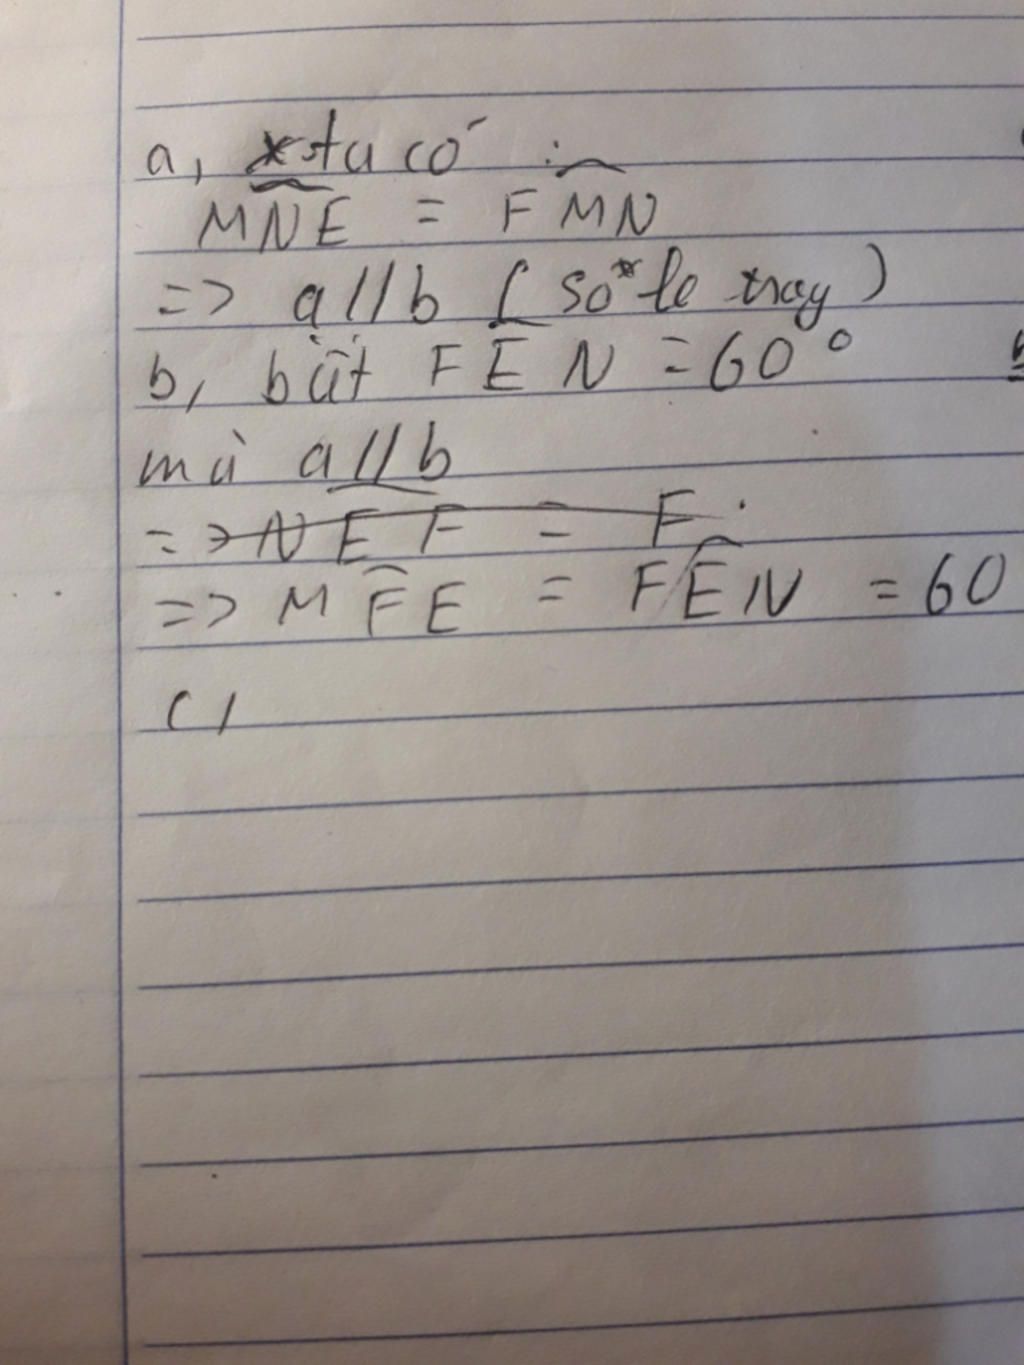 a, ta có :
MNE = FMN
=> a // b ( so le trog )
b, bứt FEN = 60°
mà a // b
=> NEF = F
=> MFE = FEN = 60
c,